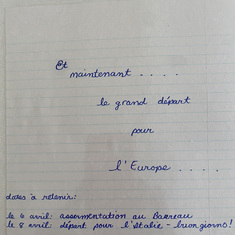 Et
maintenant . . . .
le grand départ
pour
l'Europe . . . . .
dates à retenir:
le 4 avril: assermentation au Barreau
le 8 avril: départ pour l'Italie - buon giorno!